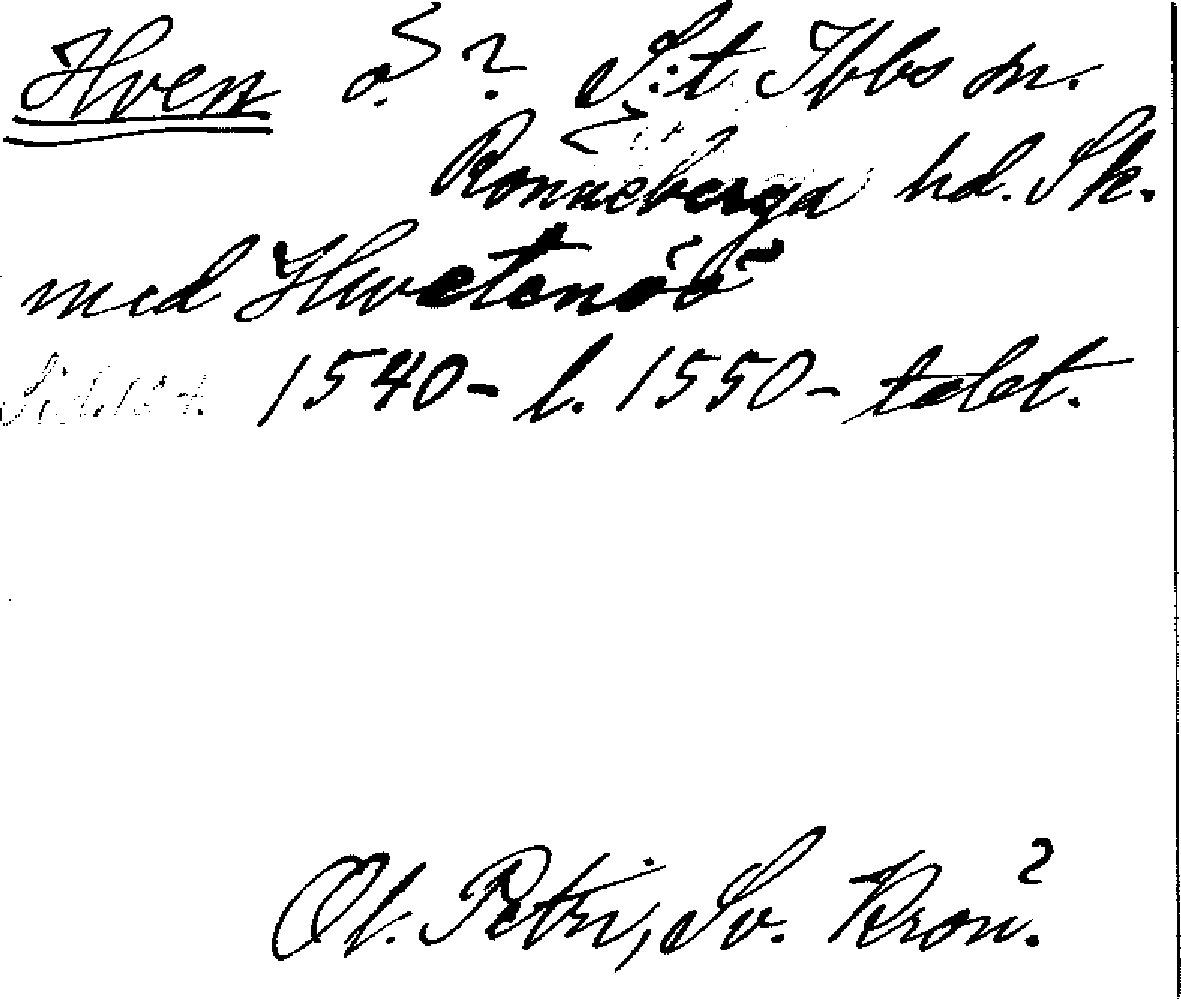 Hven ö.? S:t Ibbs sn.
Rönneberga hd. Sk.
med Hwetenöö
Sid. 134. 1540- l. 1550-talet.
Ol. Petri, Sv. Krön.²